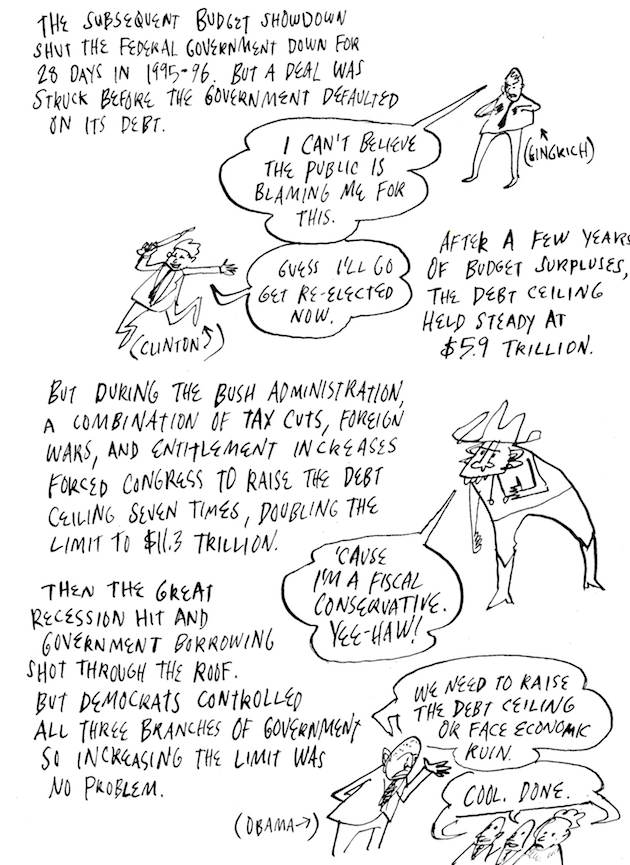 THE SUBSEQUENT BUDGET SHOWDOWN
SHUT THE FEDERAL GOVERNMENT DOWN FOR
28 DAYS IN 1995-96. BUT A DEAL WAS
STRUCK BEFORE THE GOVERNMENT DEFAULTED
ON ITS DEBT.
(GINGRICH)
I CAN'T BELIEVE
THE PUBLIC IS
BLAMING ME FOR
THIS.
GUESS I'LL GO
GET RE-ELECTED
NOW.
(CLINTON)
AFTER A FEW YEARS
OF BUDGET SURPLUSES,
THE DEBT CEILING
HELD STEADY AT
$5.9 TRILLION.
BUT DURING THE BUSH ADMINISTRATION,
A COMBINATION OF TAX CUTS, FOREIGN
WARS, AND ENTITLEMENT INCREASES
FORCED CONGRESS TO RAISE THE DEBT
CEILING SEVEN TIMES, DOUBLING THE
LIMIT TO $11.3 TRILLION.
'CAUSE
I'M A FISCAL
CONSERVATIVE.
YEE-HAW!
THEN THE GREAT
RECESSION HIT AND
GOVERNMENT BORROWING
SHOT THROUGH THE ROOF.
BUT DEMOCRATS CONTROLLED
ALL THREE BRANCHES OF GOVERNMENT
SO INCREASING THE LIMIT WAS
NO PROBLEM.
WE NEED TO RAISE
THE DEBT CEILING
OR FACE ECONOMIC
RUIN.
COOL. DONE.
(OBAMA→)